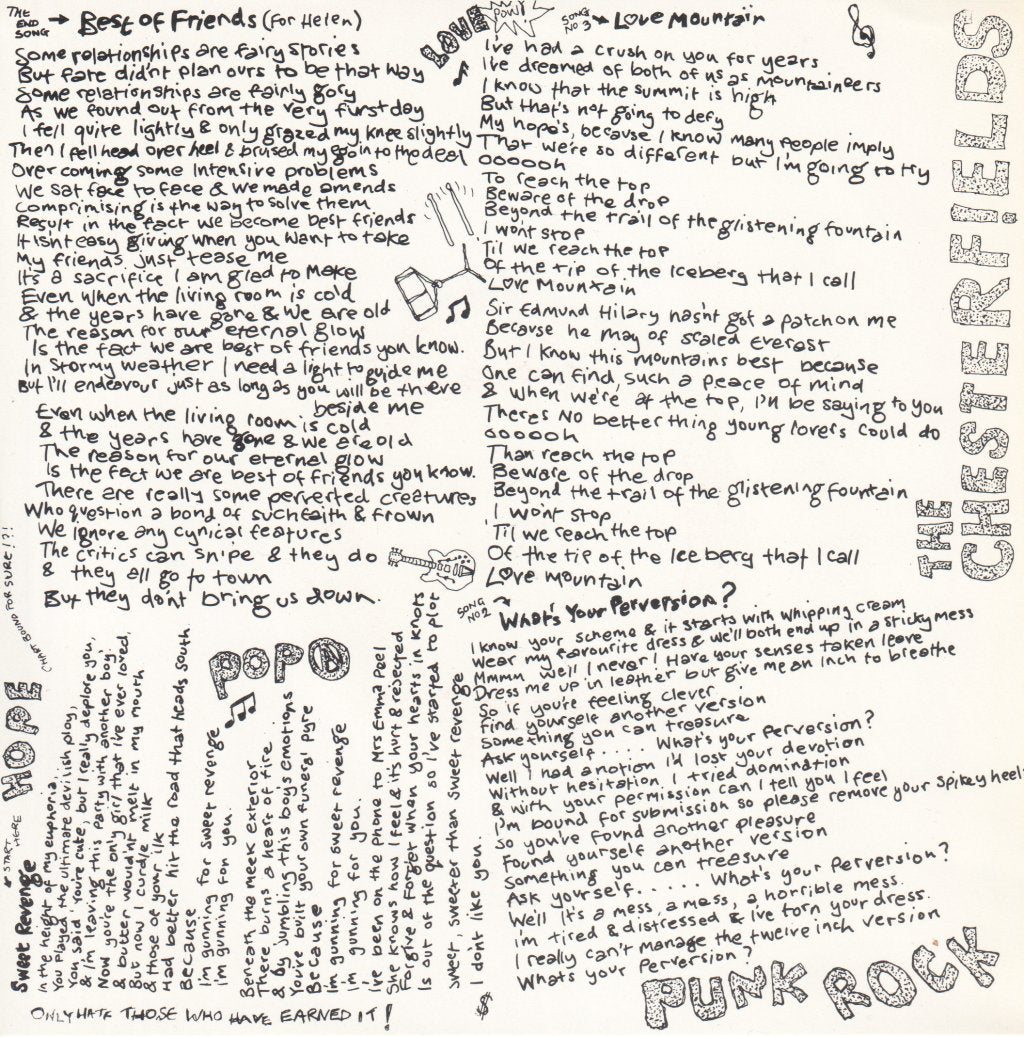 THE END SONG → BEST OF FRIENDS (FOR HELEN)
Some relationships are fairy stories
But fate did'nt plan ours to be that way
Some relationships are fairly gory
As we found out from the very first day
I fell quite lightly & only grazed my knee slightly
Then I fell head over heel & bruised my ego in to the deal
Over coming some intensive problems
We sat face to face & we made amends
Comprimising is the way to solve them
Result in the fact we become best friends
It isnt easy giving when you want to take
My friends just tease me
It's a sacrifice I am glad to make
Even when the living room is cold
& the years have gone & we are old
The reason for our eternal glow
Is the fact we are best of friends you know.
In stormy weather I need a light to guide me
But I'll endeavour just as long as you will be there
beside me
Even when the living room is cold
& the years have gone & we are old
The reason for our eternal glow
Is the fact we are best of friends you know.
There are really some perverted creatures
Who question a bond of such faith & frown
We ignore any cynical features
The critics can snipe & they do
& they all go to town
But they don't bring us down.
LOVE
POW!
SONG NO 3 → LOVE MOUNTAIN
I've had a crush on you for years
I've dreamed of both of us as mountaineers
I know that the summit is high
But that's not going to defy
My hope's, because I know many people imply
That we're so different but I'm going to try
oooooh
To reach the top
Beware of the drop
Beyond the trail of the glistening fountain
I won't stop
Til we reach the top
Of the tip of the Iceberg that I call
Love Mountain
Sir Edmund Hilary hasn't got a patch on me
Because he may of scaled Everest
But I know this mountains best because
One can find, such a peace of mind
& when we're at the top, I'll be saying to you
Theres NO better thing young lovers could do
ooooooh
Than reach the top
Beware of the drop
Beyond the trail of the glistening fountain
I won't stop
Til we reach the top
Of the tip of the Ice berg that I call
Love Mountain
THE
CHESTERFIELDS
SONG NO 2 → WHAT'S YOUR PERVERSION?
I know your scheme & it starts with whipping cream
Wear my favourite dress & we'll both end up in a sticky mess
Mmmm well I never! Have your senses taken leave
Dress me up in leather but give me an inch to breathe
So if you're feeling clever
Find yourself another version
Something you can treasure
Ask yourself..... What's your Perversion?
Well I had a notion I'd lost your devotion
Without hesitation I tried domination
& with your permission can I tell you I feel
I'm bound for submission so please remove your spikey heel
So you've found another pleasure
Found yourself another version
Something you can treasure
Ask yourself..... What's your Perversion?
We'll it's a mess, a mess, a horrible mess.
I'm tired & distressed & I've torn your dress.
I really can't manage the twelve inch version
What's your Perversion?
PUNK ROCK
CHART BOUND FOR SURE!?!
HOPE
← START HERE
POP
Sweet Revenge
In the height of my euphoria,
You played the ultimate devilish ploy,
You said 'You're cute, but I really deplore you,
& I'm leaving this party with another boy,'
Now you're the only girl that I've ever loved,
& butter would'nt melt in my mouth
But now I curdle milk
& those of your ilk
Had better hit the road that heads south
Because
I'm gunning for sweet revenge
I'm gunning for you.
Beneath the meek exterior
There burns a heart of fire
& by jumbling this boy's emotions
You've built your own funeral pyre
Because
I'm gunning for sweet revenge
I'm gunning for you.
I've been on the phone to Mrs Emma Peel
She knows how I feel & it's hurt & rejected
Forgive & forget when your hearts in knots
Is out of the question so I've started to plot
Sweet, sweeter than sweet revenge
I dont like you.
ONLY HATE THOSE WHO HAVE EARNED IT!
$